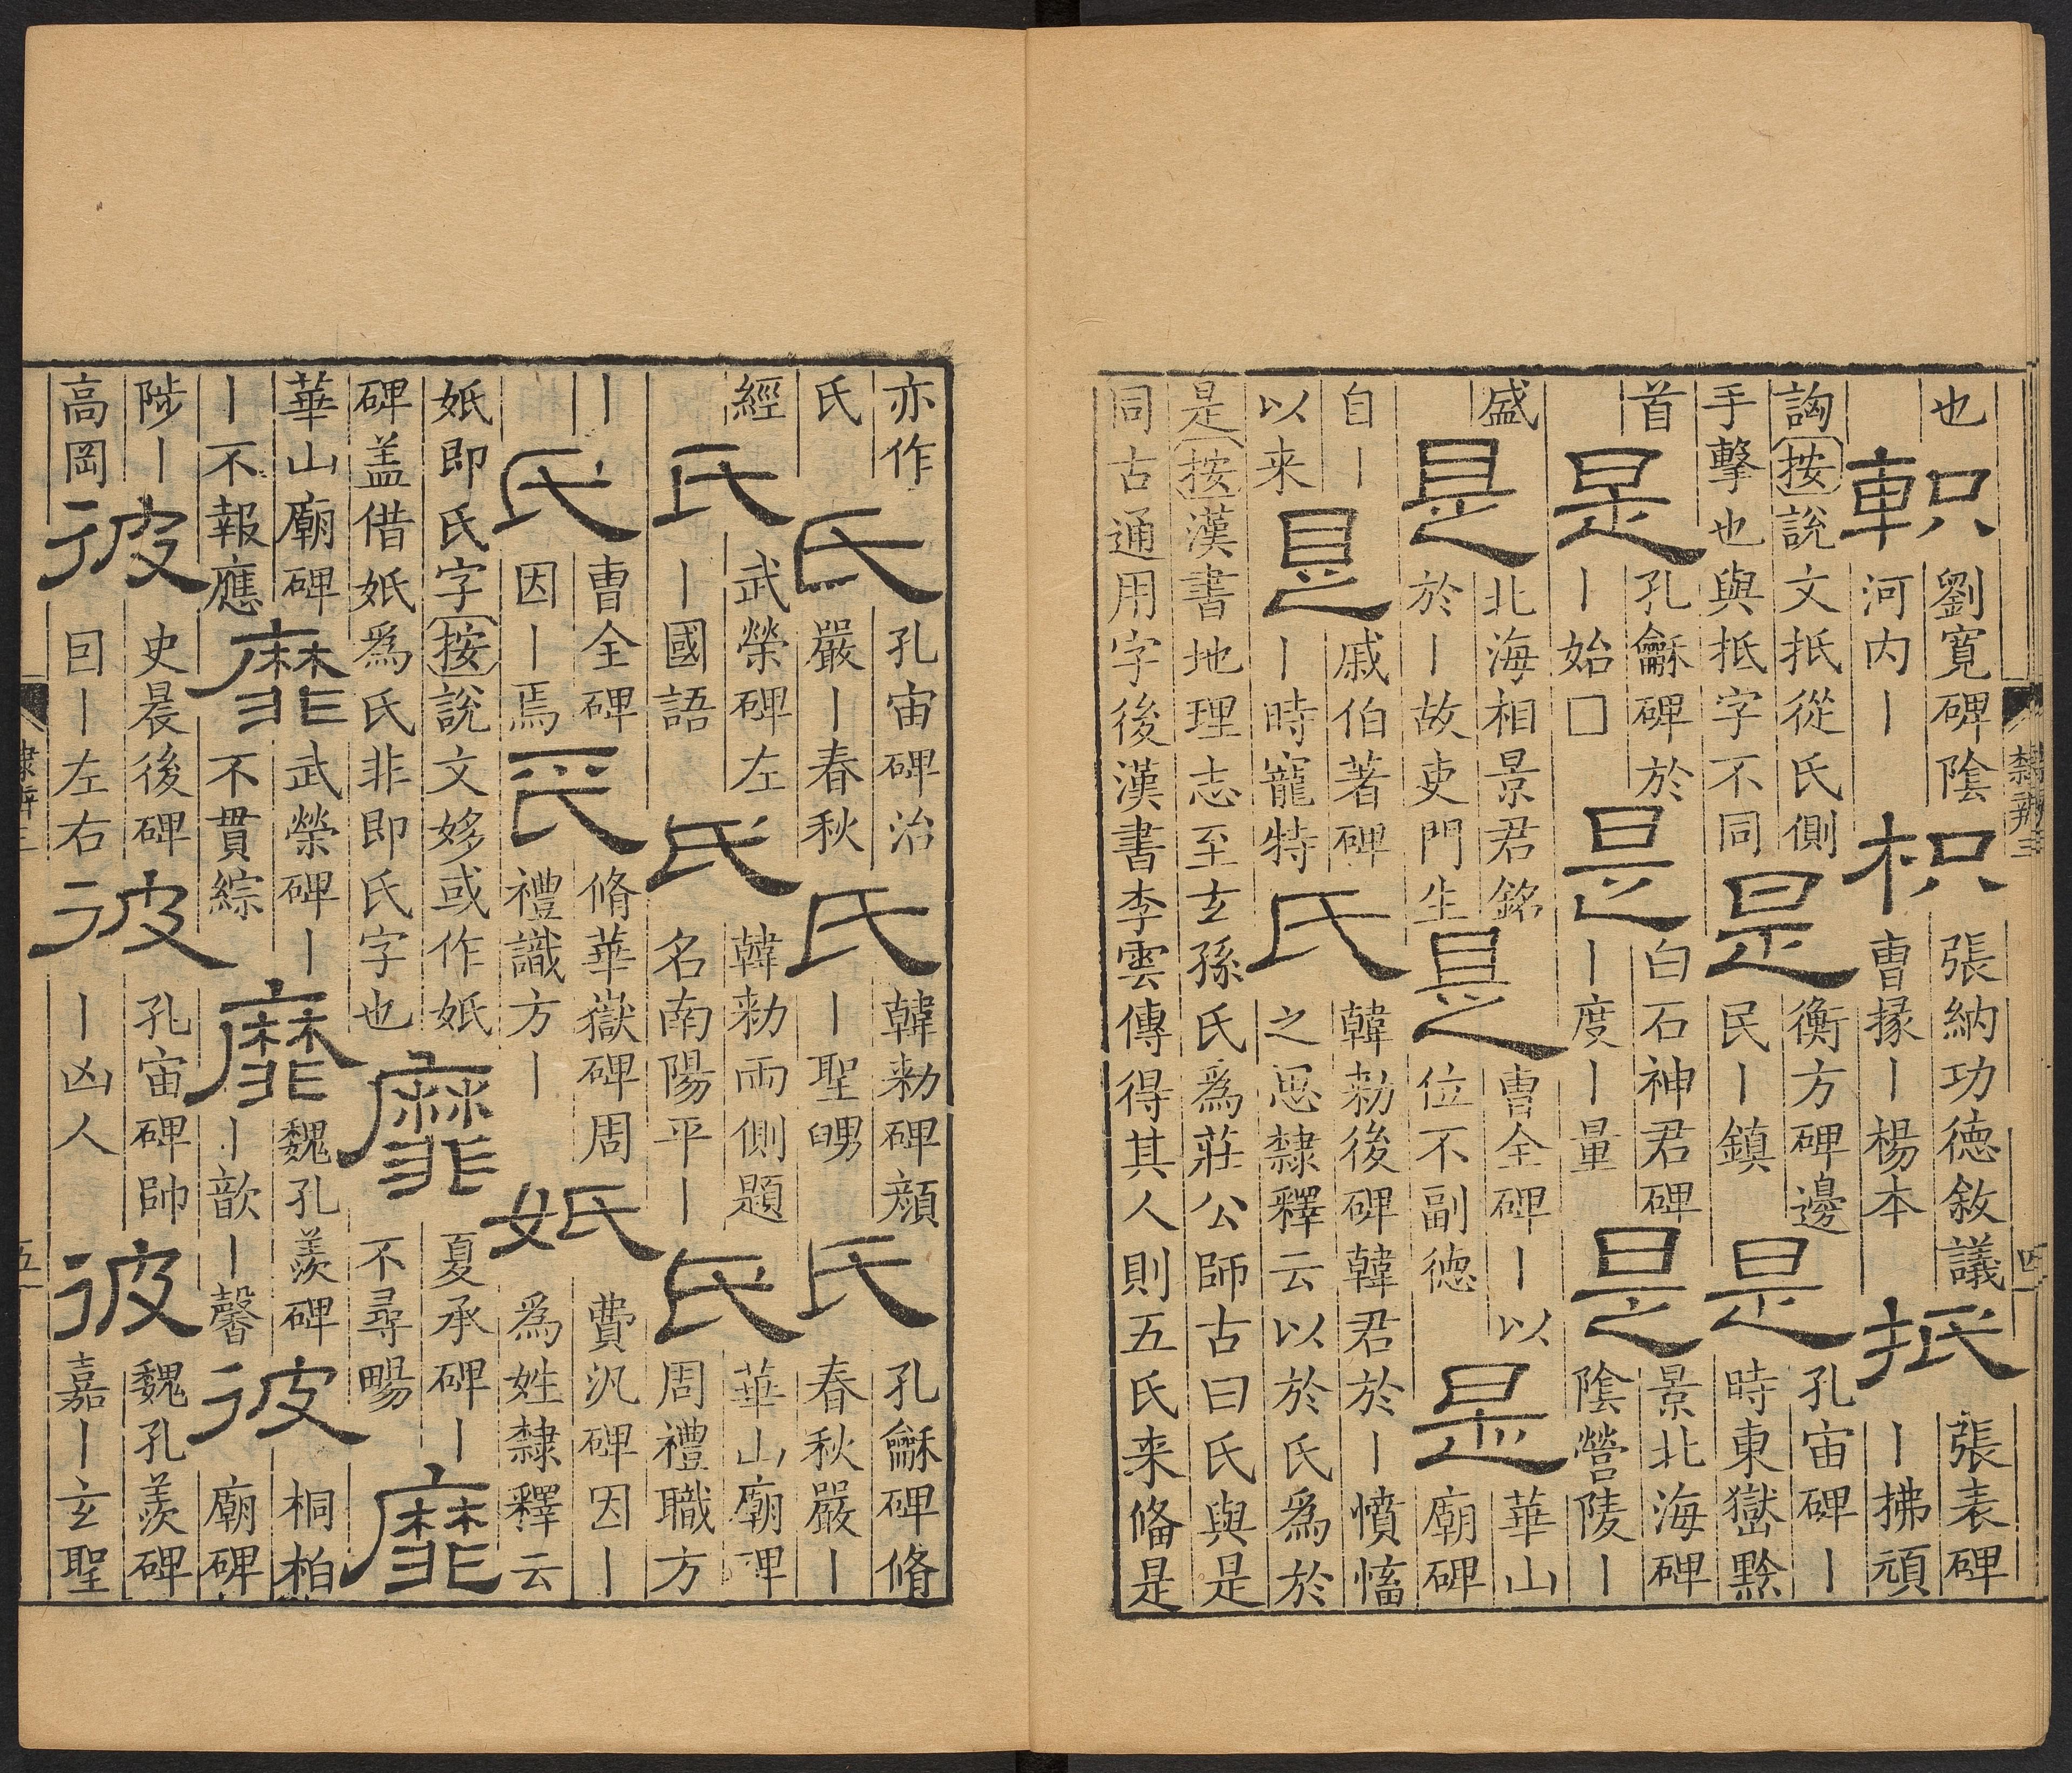 也
軹
劉寬碑陰
河内丨
枳
張納功德敘議
曹掾丨楊本
抵
張表碑
丨拂頑
訽按說文抵從氏側
手擊也與抵字不同
是
衡方碑邊
民丨鎮
是
孔宙碑丨
時東嶽黔
首
是
孔龢碑於
丨始□
是
白石神君碑
丨度丨量
是
景北海碑
陰營陵丨
盛
是
北海相景君銘
於丨故吏門生
是
曹全碑丨以
位不副德
是
華山
廟碑
自丨
以来
是
戚伯著碑
丨時寵特
氏
韓勑後碑韓君於丨憤愹
之恩隸釋云以於氏為於
是按漢書地理志至玄孫氏為莊公師古曰氏與是
同古通用字後漢書李雲傳得其人則五氏来俻是
隸辨三
四
亦作
氏
氏
孔宙碑治
嚴丨春秋
氏
韓勑碑顏
丨聖舅
氏
孔龢碑脩
春秋嚴丨
經
氏
武榮碑左
丨國語
氏
韓勑兩側題
名南陽平丨
氏
華山廟碑
周禮職方
丨
氏
曹全碑
因丨焉
氏
脩華嶽碑周
禮識方丨
㚲
費汎碑因丨
為姓隸釋云
㚲即氏字按說文姼或作㚲
碑盖借㚲為氏非即氏字也
靡
夏承碑丨
不尋暢
靡
華山廟碑
丨不報應
靡
武榮碑丨
不貫綜
靡
魏孔羨碑
丨歆丨馨
彼
桐柏
廟碑
陟丨
高岡
彼
史晨後碑
囙丨左右
彼
孔宙碑帥
丨凶人
彼
魏孔羨碑
嘉丨玄聖
隸辨三
五